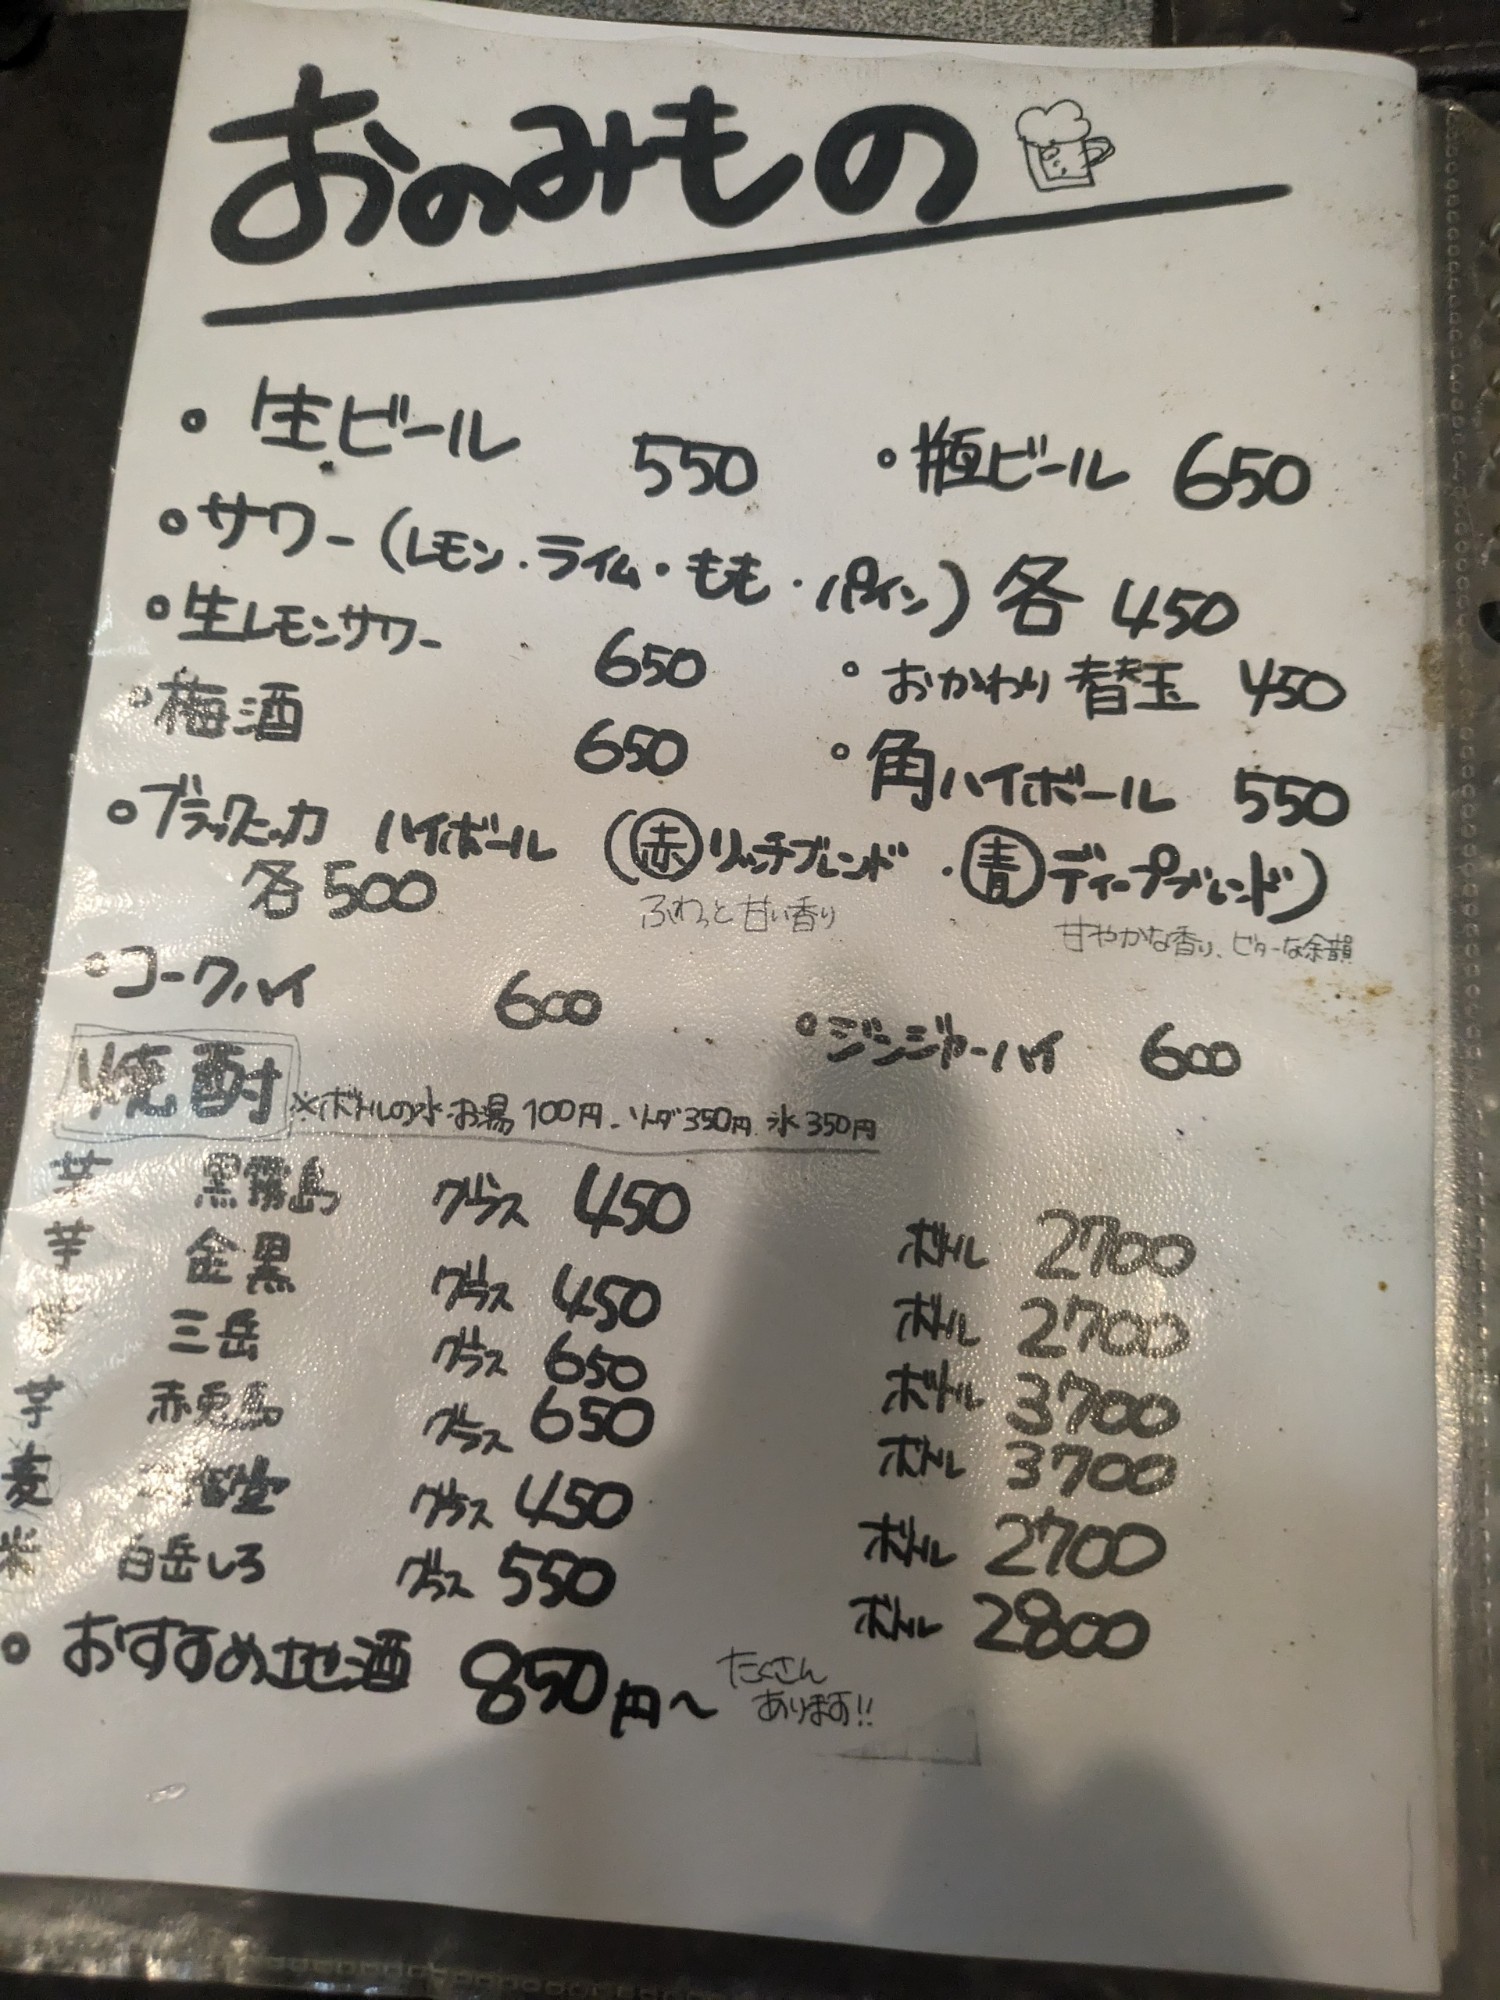 おのみもの
・生ビール 550 ・瓶ビール 650
・サワー(レモン・ライム・もも・パイン)各 450
・生レモンサワー 650 ・おかわり替玉 450
・梅酒 650 ・角ハイボール 550
・ブラックニッカ ハイボール (赤リッチブレンド・青ディープブレンド)
各500 ふわっと甘い香り 甘やかな香り、ビターな余韻
・コークハイ 600 ・ジンジャーハイ 600
焼酎 ※ボトルの水・お湯100円、ソーダ350円 氷350円
芋 黒霧島 グラス 450 ボトル 2700
芋 金黒 グラス 450 ボトル 2700
三岳 グラス 650 ボトル 3700
芋 赤兎馬 グラス 650 ボトル 3700
麦 二階堂 グラス 450 ボトル 2700
米 白岳しろ グラス 550 ボトル 2800
・おすすめ地酒 850円〜 たくさん
あります!!